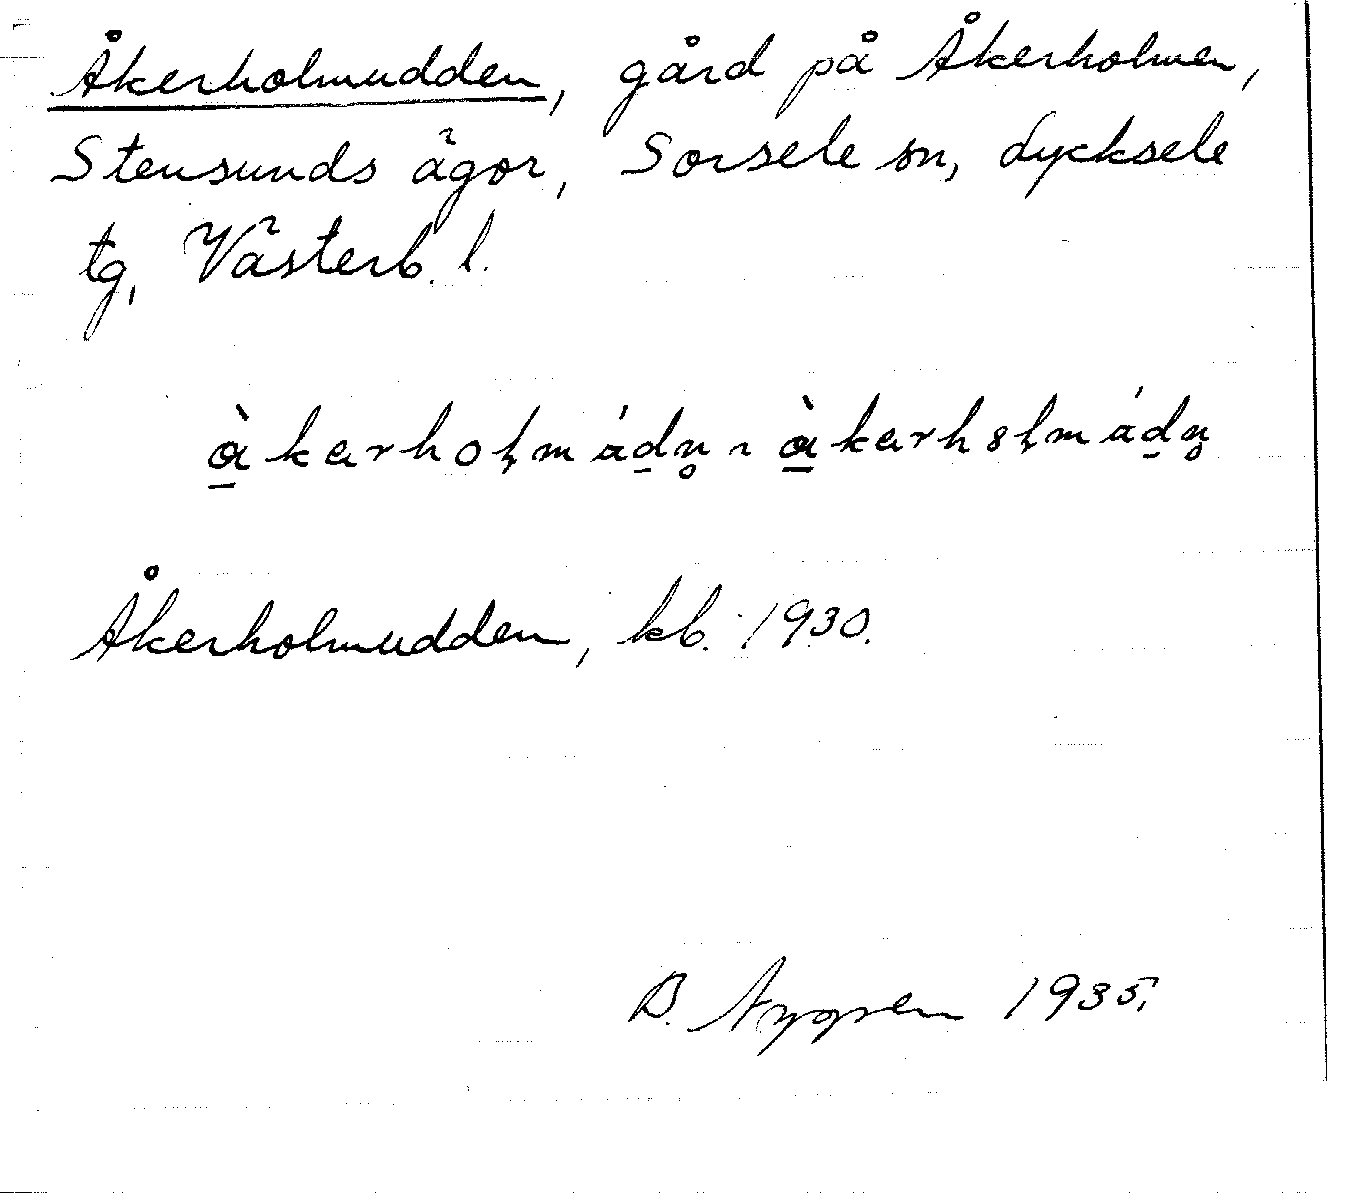 Åkerholmudden, gård på Åkerholmen,
Stensunds ägor, Sorsele sn, Lycksele
tg, Västerb. l.
Åkerholmudden, kb. 1930.
B. Nygren 1935.